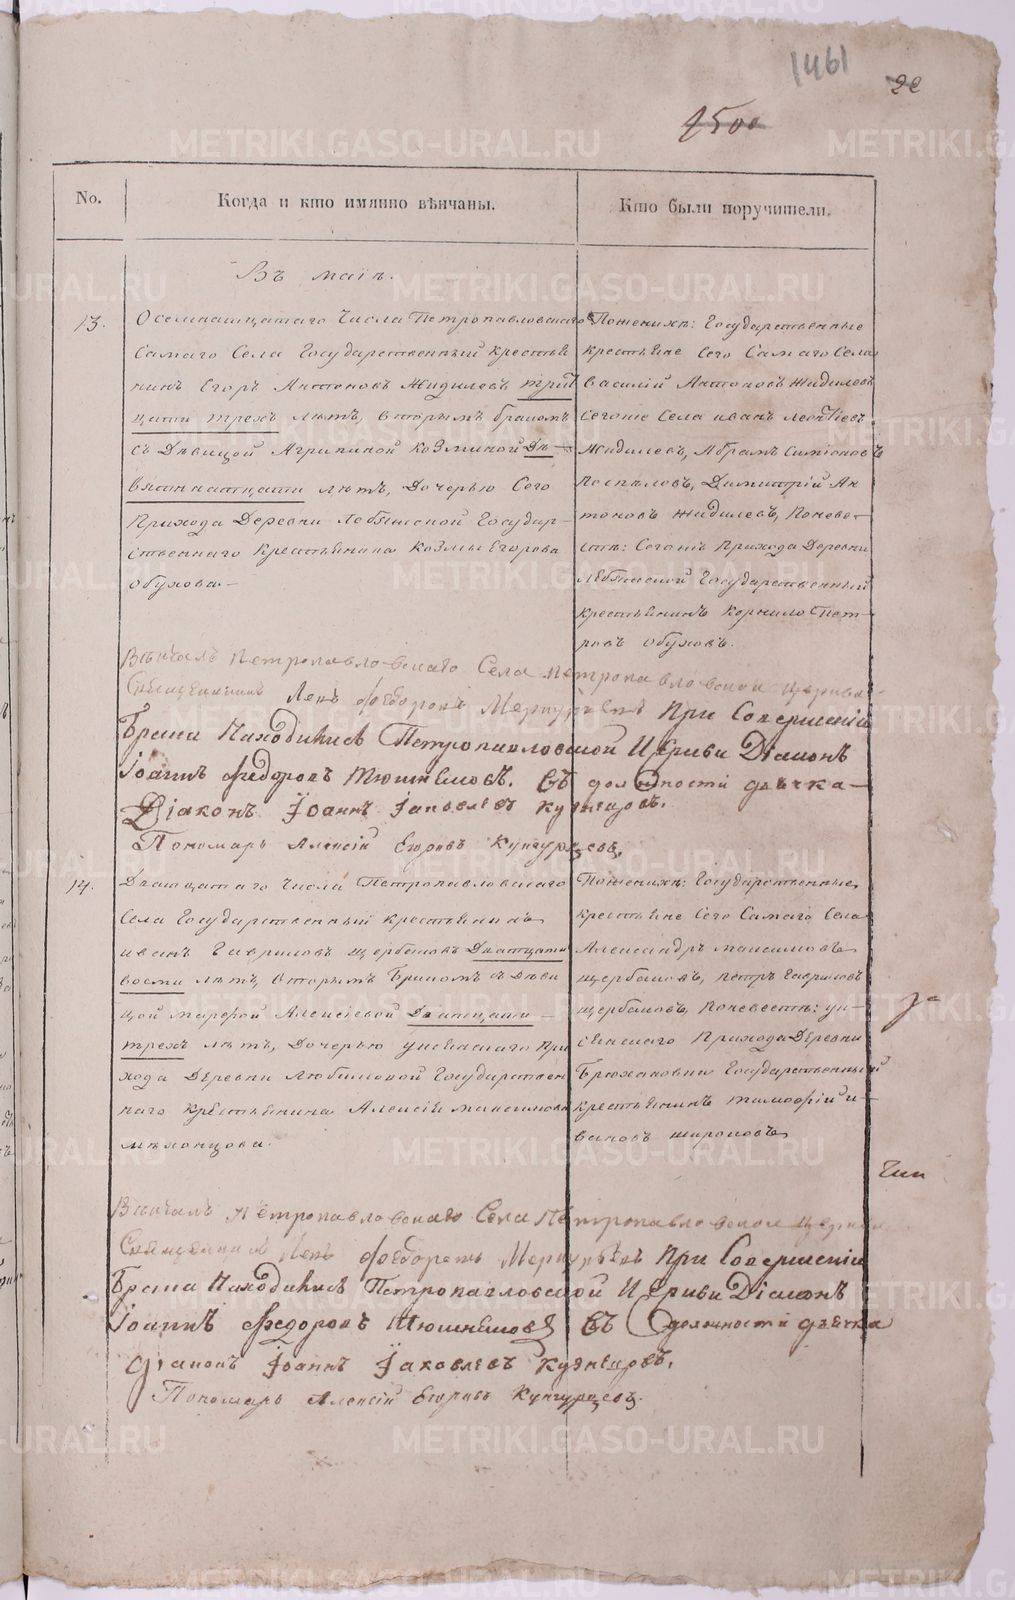 1461
1500
No.
Когда и кто имянно вѣнчаны.
Кто были поручители.
Въ маіѣ.
13.
Осемнатцатаго Числа Петропавловскаго
Самаго Села Государственный крестья
нинъ Егоръ Антоновъ Жидилевъ трит
цати трехъ лѣтъ, вторымъ бракомъ
съ Дѣвицой Агрипиной Козминой Де-
вятнатцати лѣтъ, Дочерью Сего
Прихода Деревни Лебяжской Государ-
ственнаго Крестьянина Козмы Егорова
Обухова.
По женихѣ: Государственные
крестьяне Сего Самаго Села
Василій Антоновъ Жидилевъ
Сегоже Села иванъ Леонтіевъ
Жидилевъ, Абрамъ Симіоновъ
Поспѣловъ, Димитрій Ан
тоновъ Жидилевъ, По неве-
стѣ: Сегожъ Прихода Деревни
Лебяжской Государственный
крестьянинъ Корнило Пет
ровъ Обуховъ.
Вѣнчалъ Петропавловскаго Села Петропавловской Церкви
Священникъ Левъ Феодоровъ Меркурьевъ При Совершеніи
Брака Находился Петропавловской Церкви Діаконъ
Іоаннъ Федоровъ Тюшняковъ. Въ должности дьячка
Діаконъ Іоаннъ Іаковлевъ Кузнецовъ.
Пономарь Алексій Егоровъ Кунгурцевъ.
14.
Дватцатаго Числа Петропавловскаго
Села Государственный крестьянинъ
иванъ Гавриловъ Щербаковъ Дватцати
восми лѣтъ, вторымъ бракомъ съ Дѣви
цой Марфой Алексіевой Дватцати
трехъ лѣтъ, Дочерью Прихода
Деревни Любимовой Государствен
наго крестьянина Алексія Максимова
Мѣхонцова.
По женихѣ: Государственные
крестьяне Сего Самаго Села
Александръ Максимовъ
Щербаковъ, петръ Гавриловъ
Щербаковъ, По невестѣ:
Прихода Деревни
Брюхановки Государственный
крестьянинъ тимофій и-
вановъ Широковъ
Вѣнчалъ Петропавловскаго Села Петропавловской Церкви
Священникъ Левъ Феодоровъ Меркурьевъ При Совершеніи
Брака Находился Петропавловской Церкви Діаконъ
Іоаннъ Федоровъ Тюшняковъ Въ должности дьячка
Діаконъ Іоаннъ Іаковлевъ Кузнецовъ.
Пономарь Алексій Егоровъ Кунгурцевъ.
METRIKI.GASO-URAL.RU